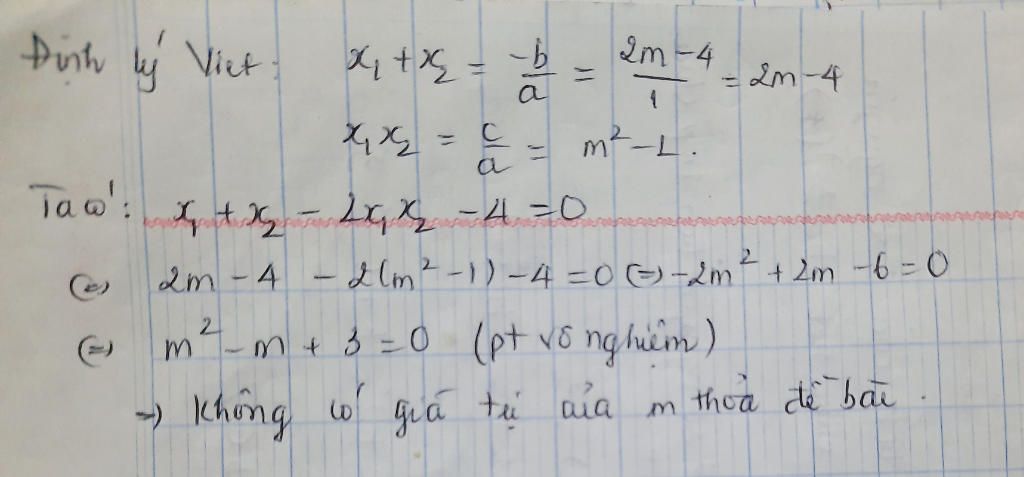 Định lý Viet: x₁ + x₂ = -b/a = 2m-4/1 = 2m-4
x₁x₂ = c/a = m² - 1.
Ta có: x₁ + x₂ - 2x₁x₂ - 4 = 0
(=) 2m - 4 - 2(m² - 1) - 4 = 0 (=) -2m² + 2m - 6 = 0
(=) m² - m + 3 = 0 (pt vô nghiệm)
→ Không có giá trị của m thoả đề bài.